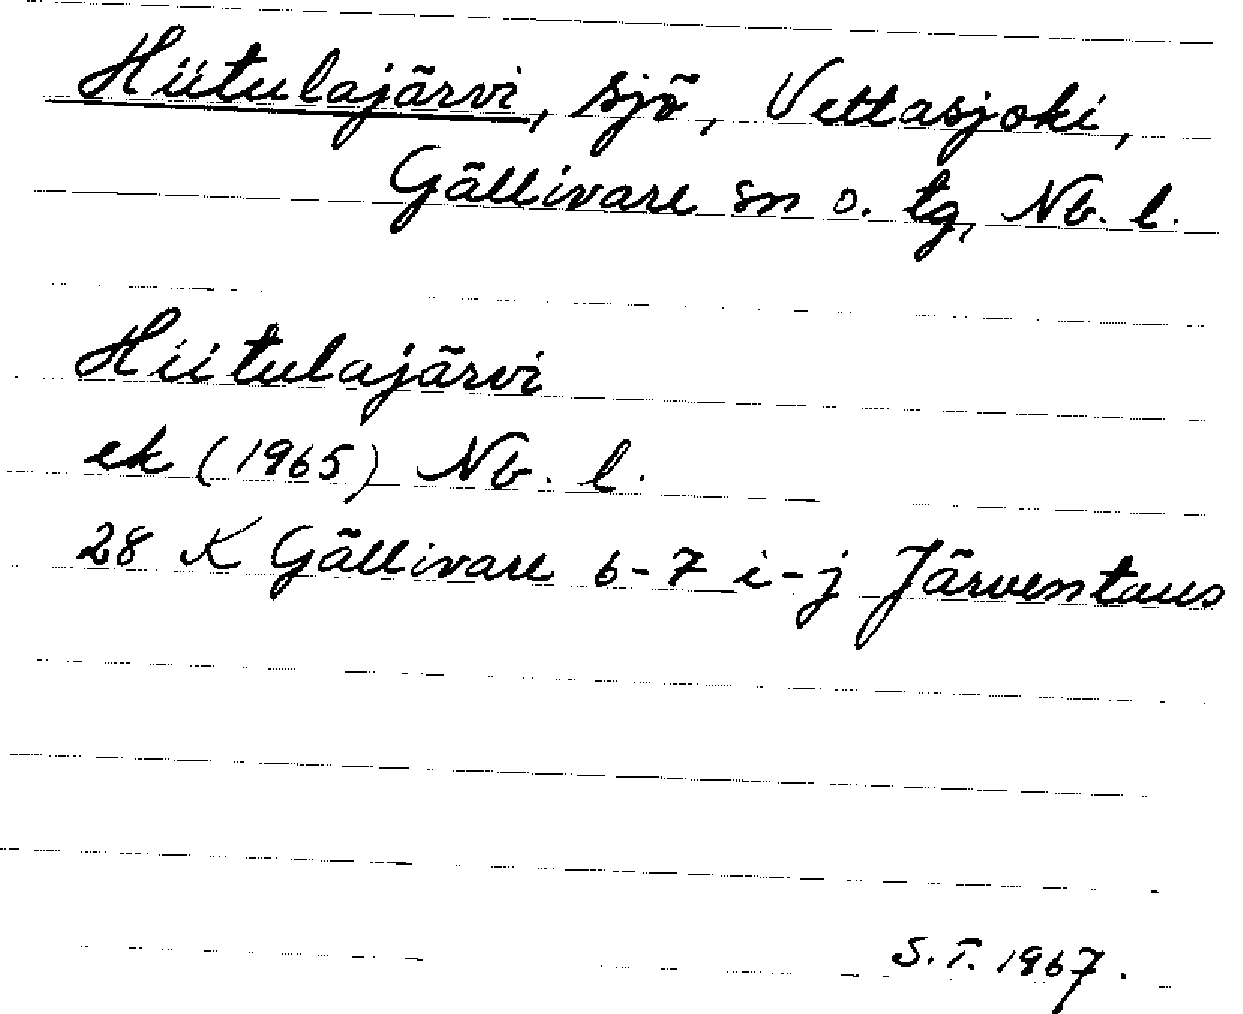 Hiitulajärvi, sjö, Vettasjoki,
Gällivare sn o. tg, Nb. l.
Hiitulajärvi
ek (1965) Nb. l.
28 K Gällivare 6-7 i-j Järventaus
S.T. 1967.